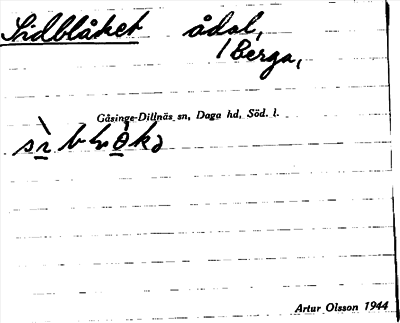 Sidblåket ådal,
/ Berga,
Gåsinge-Dillnäs sn, Daga hd, Söd. l.
Artur Olsson 1944